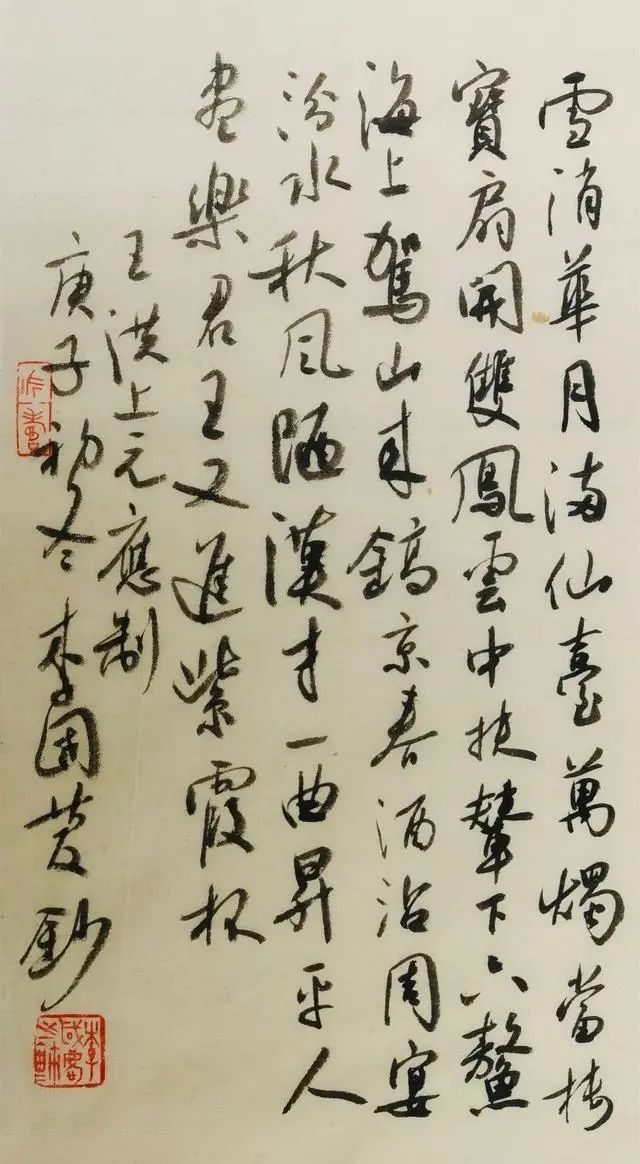 雪消華月滿仙臺萬燭當樓
寶扇開雙鳳雲中扶輦下六鰲
海上駕山來鎬京春酒沾周宴
汾水秋風陋漢才一曲昇平人
盡樂君王又進紫霞杯
王洪上元應制
庚子初冬李國慶鈔